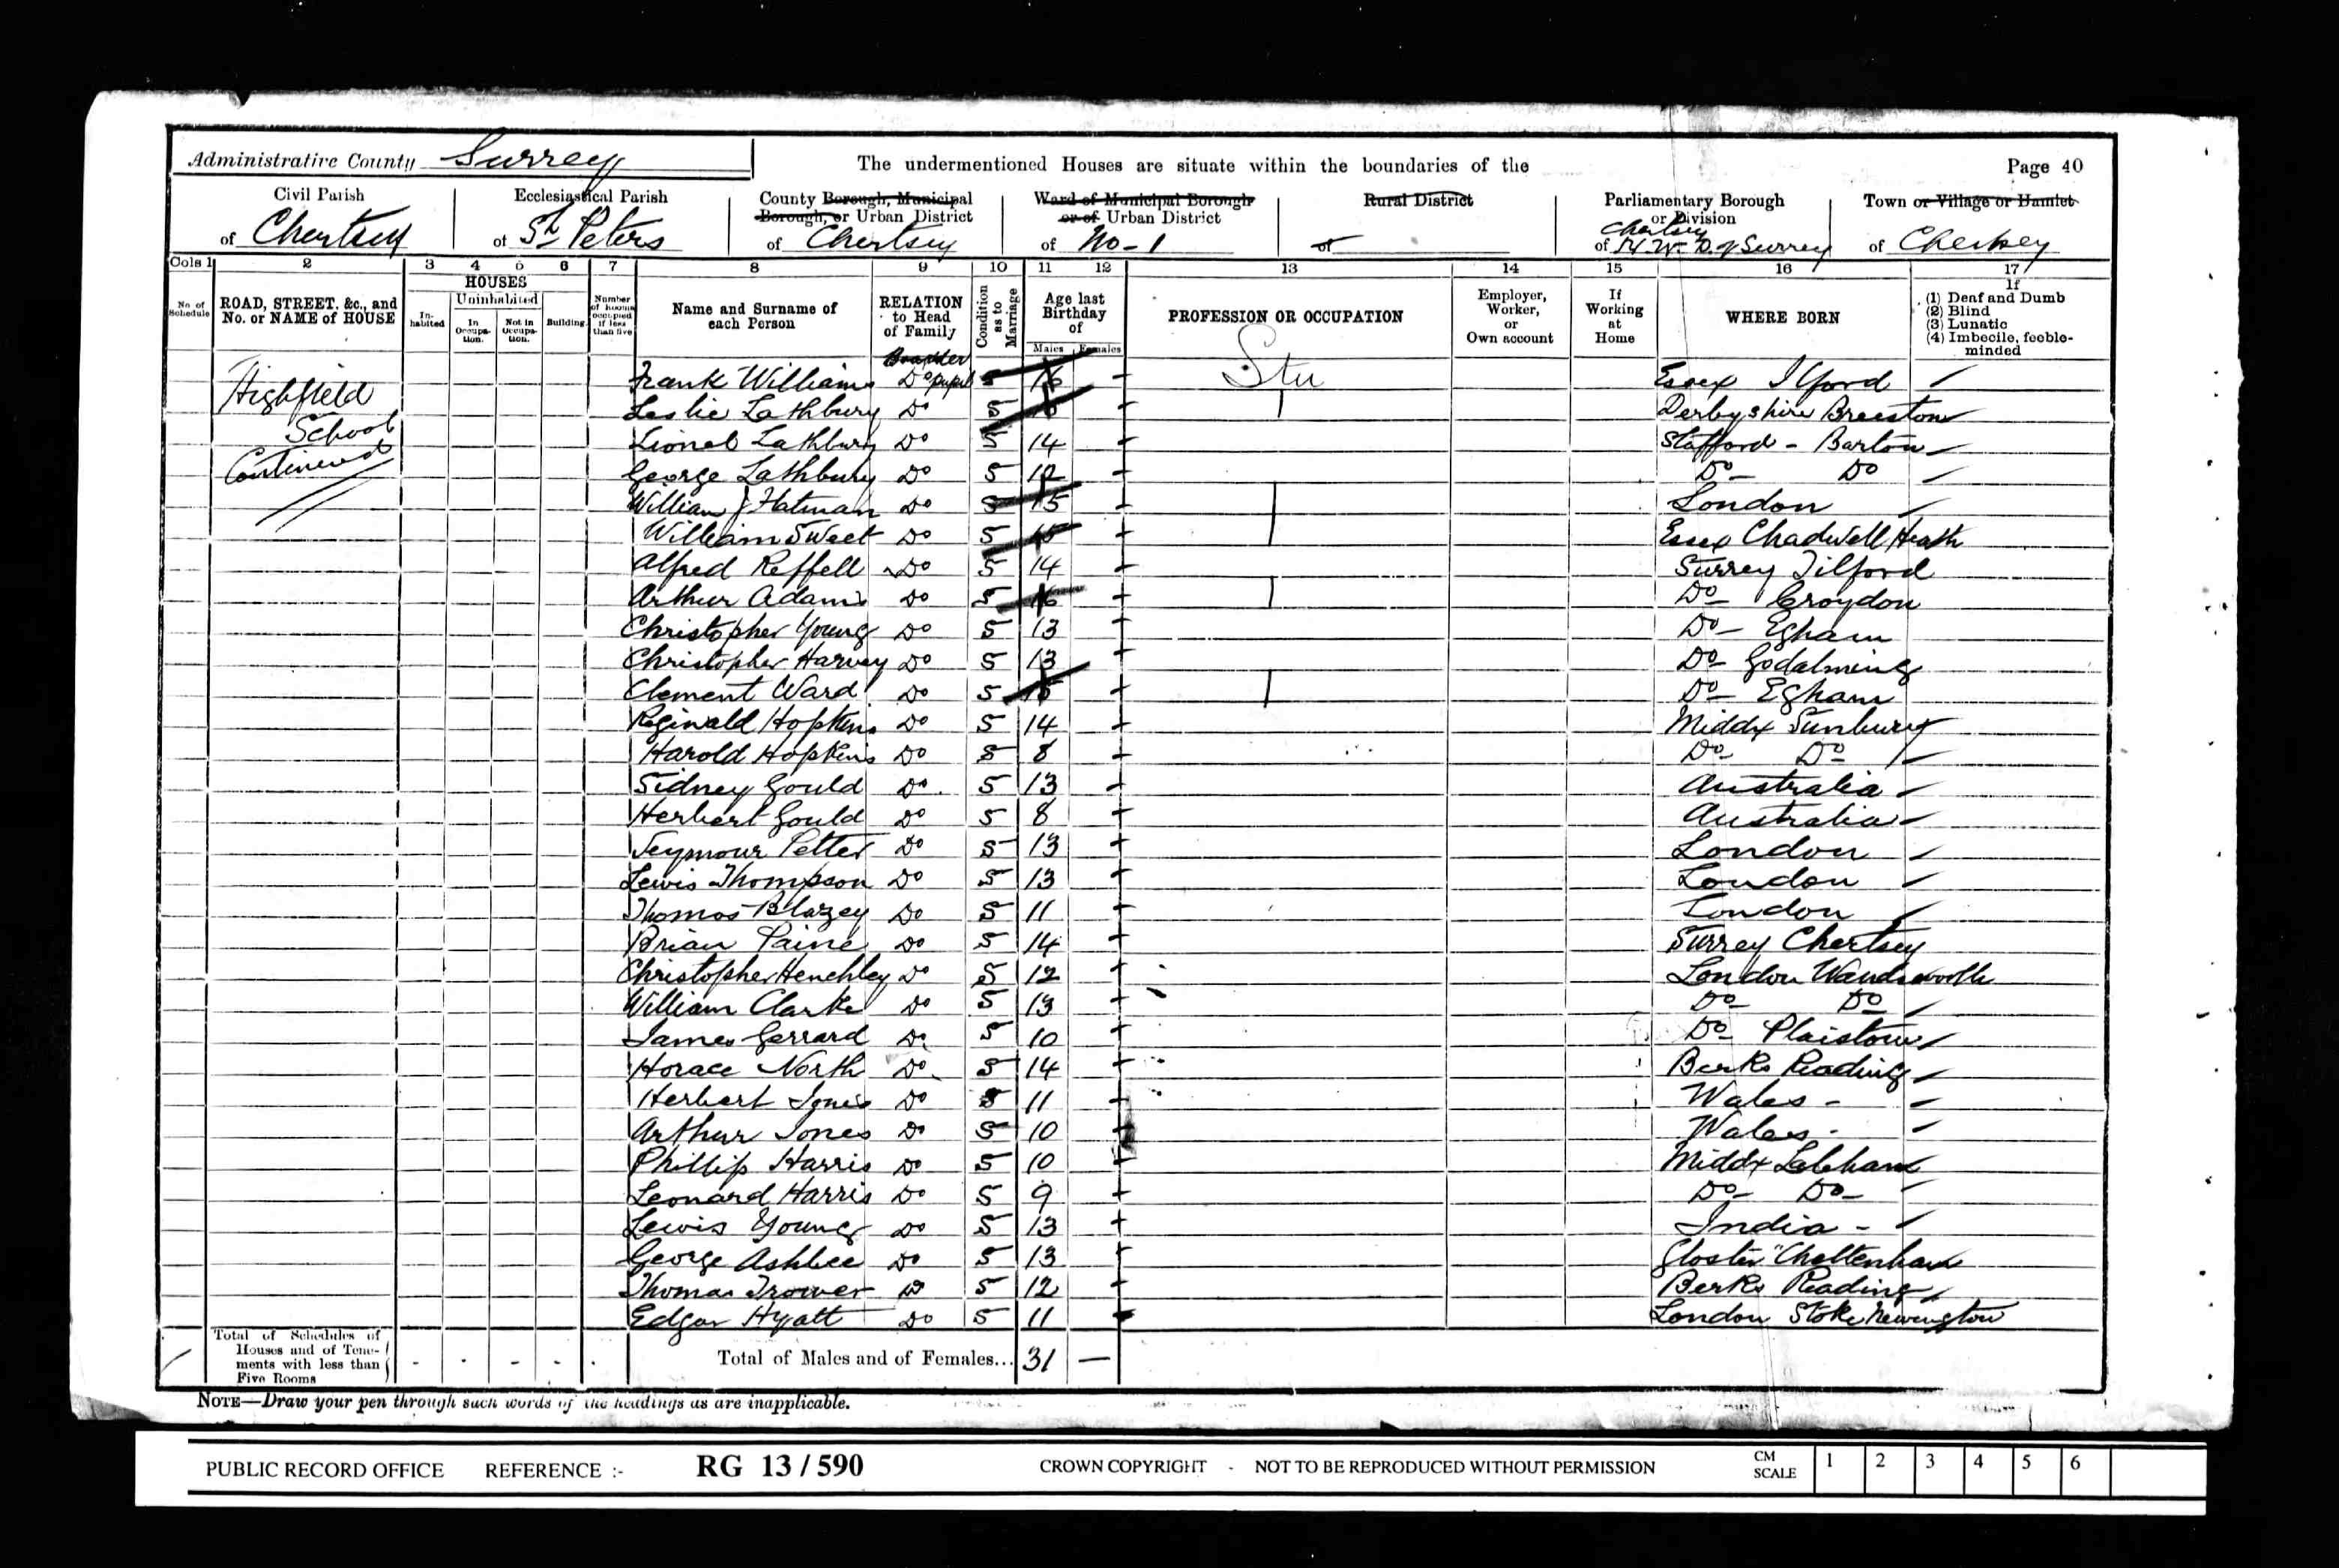 Administrative County Surrey The undermentioned Houses are situate within the boundaries of the Page 40
Civil Parish of Chertsey
Ecclesiastical Parish of St Peters
County Borough, Municipal Borough, or Urban District of Chertsey
Ward of Municipal Borough or of Urban District of No-1
Rural District of
Parliamentary Borough or Division of Chertsey N.W. D. of Surrey
Town or Village or Hamlet of Chertsey
Cols 1 2 3 4 5 6 7 8 9 10 11 12 13 14 15 16 17
No. of Schedule
ROAD, STREET, &c., and No. or NAME of HOUSE
HOUSES
Inhabited
Uninhabited
In Occupation.
Not in Occupation.
Building
Number of Rooms occupied if less than five
Name and Surname of each Person
RELATION to Head of Family
Condition as to Marriage
Age last Birthday of
Males Females
PROFESSION OR OCCUPATION
Employer, Worker, or Own account
If Working at Home
WHERE BORN
If
(1) Deaf and Dumb
(2) Blind
(3) Lunatic
(4) Imbecile, feeble-minded
Highfield
School
Continued
Boarder
Frank Williams Do pupil S 16 Stu Essex Ilford
Leslie Lathbury Do S Derbyshire Breeston
Lionel Lathbury Do S 14 Stafford - Barton
George Lathbury Do S 12 Do - Do
William J Hatman Do S 15 London
William Sweet Do S 15 Essex Chadwell Heath
Alfred Reffell Do S 14 Surrey Tilford
Arthur Adams Do S 16 Do - Croydon
Christopher Young Do S 13 Do - Egham
Christopher Harvey Do S 13 Do - Godalming
Clement Ward Do S 15 Do - Egham
Reginald Hopkins Do S 14 Middx Sunbury
Harold Hopkins Do S 8 Do - Do
Sidney Gould Do S 13 Australia
Herbert Gould Do S 8 Australia
Seymour Petter Do S 13 London
Lewis Thompson Do S 13 London
Thomas Blazey Do S 11 London
Brian Paine Do S 14 Surrey Chertsey
Christopher Henchley Do S 12 London Wandsworth
William Clarke Do S 13 Do - Do
James Gerrard Do S 10 Do - Plaistow
Horace North Do S 14 Berks Reading
Herbert Jones Do S 11 Wales -
Arthur Jones Do S 10 Wales -
Phillip Harris Do S 10 Middx Laleham
Leonard Harris Do S 9 Do - Do -
Lewis Young Do S 13 India -
George Ashbee Do S 13 Gloster Cheltenham
Thomas Trower Do S 12 Berks Reading
Edgar Hyatt Do S 11 London Stoke Newington
Total of Schedules of Houses and of Tenements with less than Five Rooms
Total of Males and of Females... 31 —
NOTE—Draw your pen through such words of the headings as are inapplicable.
PUBLIC RECORD OFFICE REFERENCE :- RG 13/590 CROWN COPYRIGHT - NOT TO BE REPRODUCED WITHOUT PERMISSION CM SCALE 1 2 3 4 5 6